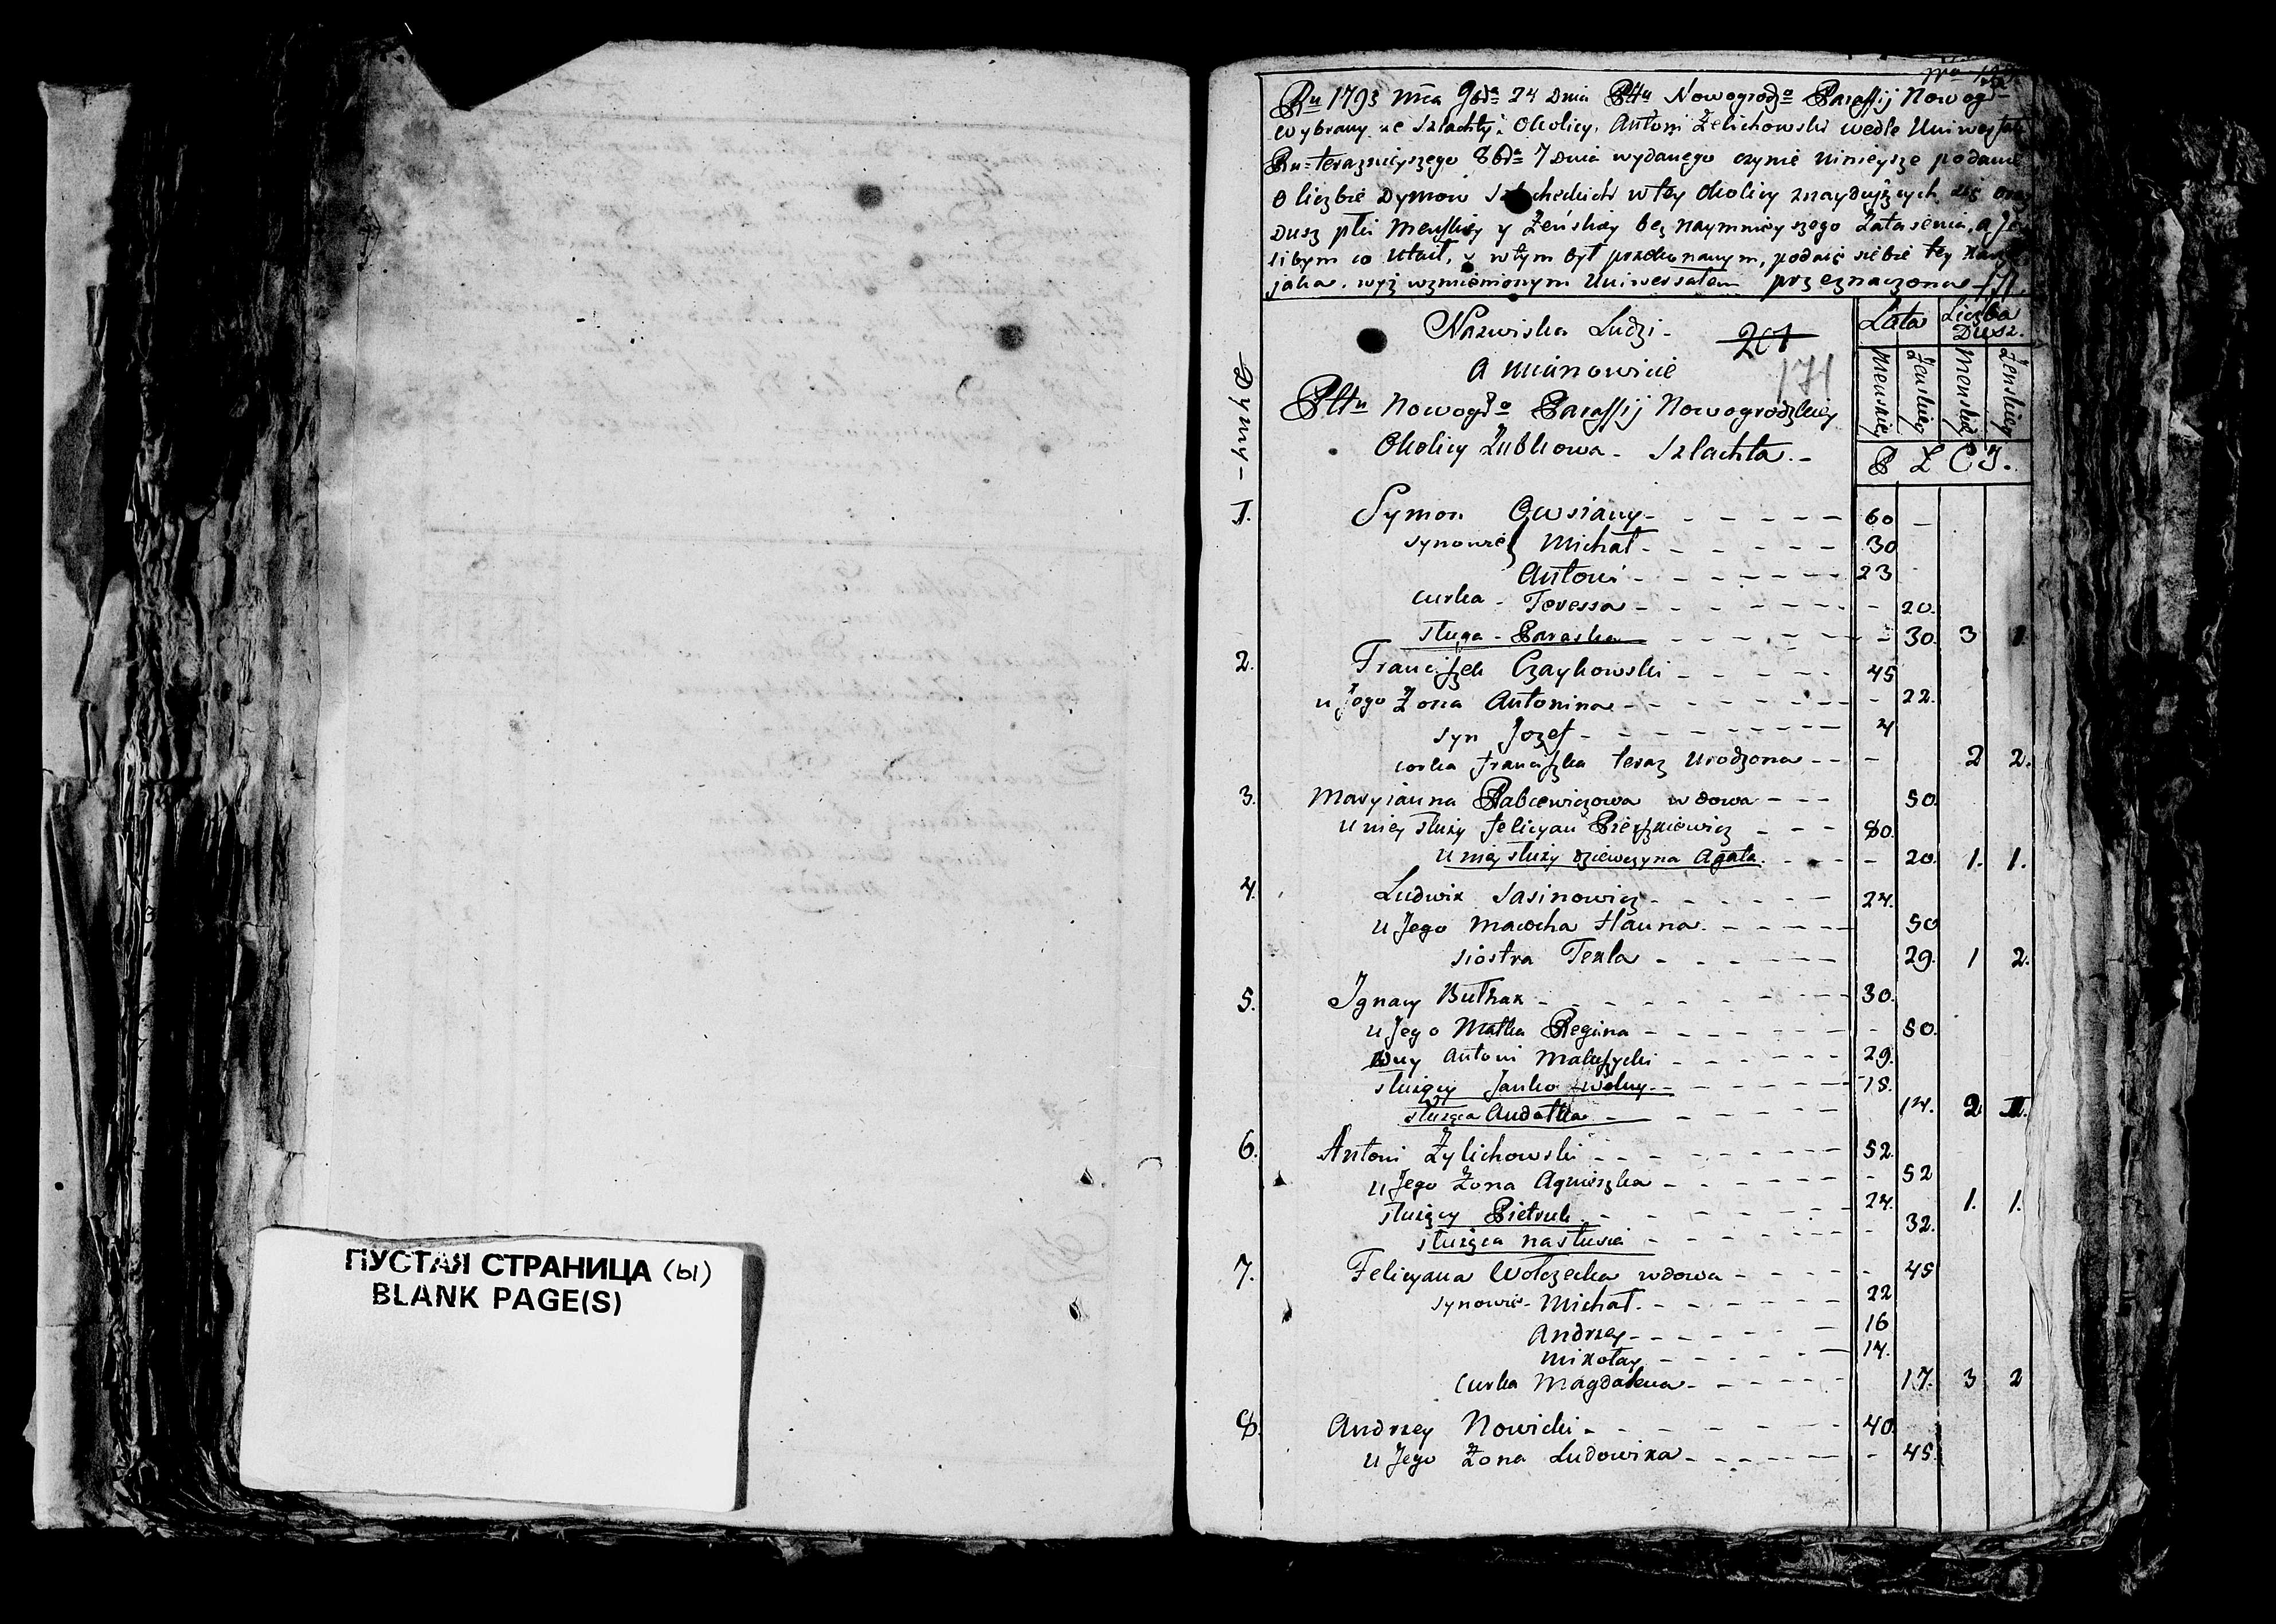 ПУСТАЯ СТРАНИЦА (ы)
BLANK PAGE(S)
Ru 1793 Mca 9bra 24 Dnia Pttu Nowogrodzo Paraffij Nowogr
wybrany ze Szlachty i Okolicy, Antoni Żelichowski wedle Uniwersału
Ru teraznieyszego 8bra 7 Dnia wydanego czynie ninieysze podanie
o liczbie Dymow Szlacheckich w tey Okolicy znayduiących się oraz
Dusz płci Męskiey y Żeńskiey bez naymnieyszego Zataienia, a Je
libym co utaił, y w tym był przekonanym, podaię siebie tey karze
jaka wyż wzmienionym Uniwersałem przeznaczona 171
Nazwiska Ludzi 201
a mianowicie 171
Pttu Nowogdo Paraffij Nowogrodzkiey
Okolicy Zubkowa - Szlachta -
Dymy -
Lata Liczba Dusz.
Meuskiey Żeuskiey Menskiey Żenskiey
P L C J.
1. Symon Owsiany - 60 -
synowie Michał - 30
Antoni - 23
curka - Teressa - - 20.
sługa - Paraska - - 30. 3 1.
2. Franciszek Czaykowski - 45
u Jego Żona Antonina - - 22.
syn Jozef - 4
corka franciszka teraz urodzona - - 2 2.
3. Maryianna Rabcewiczowa wdowa - 50.
u niey służy felicyan Pietszkiewicz - 80.
u niey służy dziewczyna Agata. - - 20. 1. 1.
4. Ludwik Sasinowicz - 24.
u Jego Macocha Hanna. - 50
siostra Tekla - 29. 1 2.
5. Ignacy Buthak - 30.
u Jego Matka Regina - - 50.
Wuy Antoni Małuszycki - 29.
służący Janko wolny - 15.
służąca Audotka - 14. 2. 1.
6. Antoni Żylichowski - 52.
u Jego Żona Agnieszka - - 52
służący Pietruk. - 24. 1. 1.
służąca nastusia - - 32.
7. Felicyana Wołczecka wdowa - - 45
synowie - Michał. - 22
Andrzey - 16
Mikołay - 14.
Curka Magdalena - 17. 3 2
8. Andrzey Nowicki - 40.
u Jego Żona Ludowika - - 45.